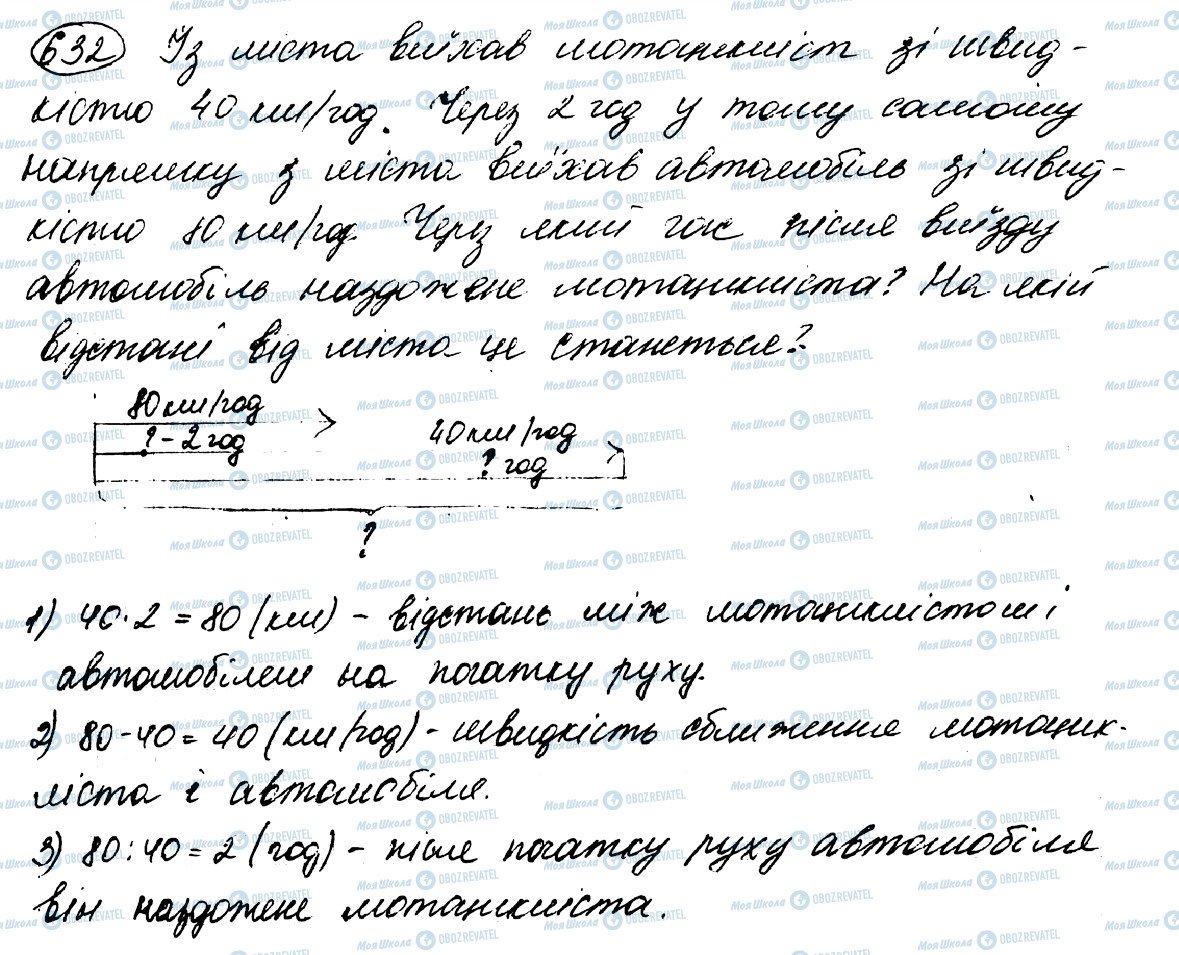 632 Із міста виїхав мотоцикліст зі швид-
кістю 40 км/год. Через 2 год у тому самому
напрямку з міста виїхав автомобіль зі швид-
кістю 80 км/год. Через який час після виїзду
автомобіль наздожене мотоцикліста? На якій
відстані від міста це станеться?
80 км/год
? - 2 год
40 км/год
? год
?
1) 40·2 = 80 (км) - відстань між мотоциклістом і
автомобілем на початку руху.
2) 80-40 = 40 (км/год) - швидкість сближення мотоцик-
ліста і автомобіля.
3) 80:40 = 2 (год) - після початку руху автомобіля
він наздожене мотоцикліста.